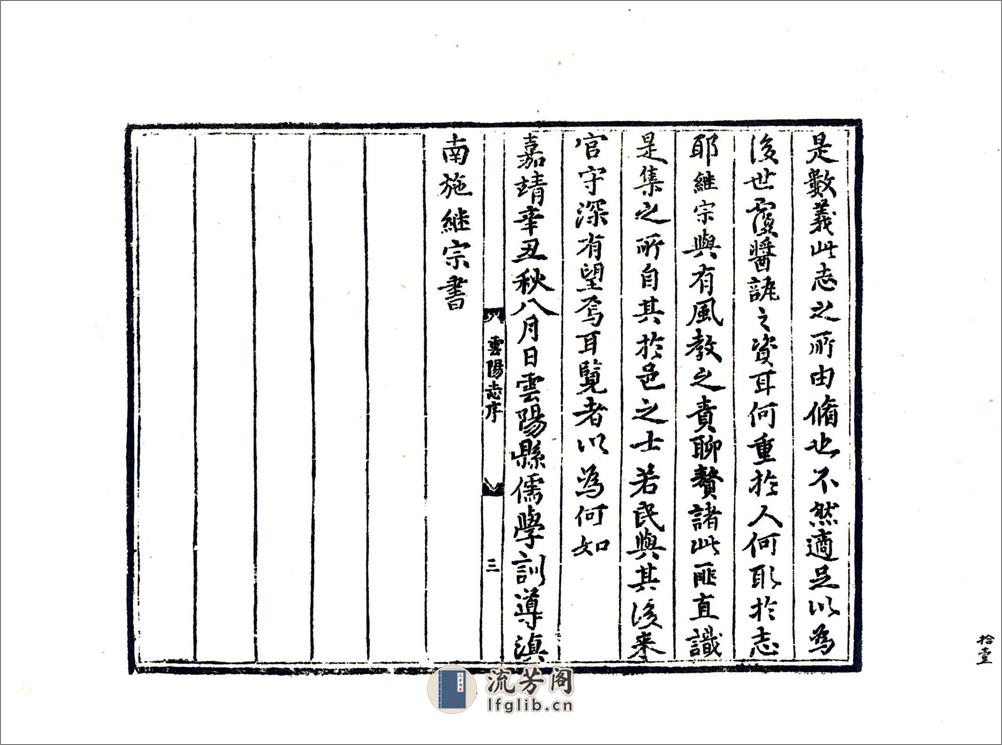 是數義此志之所由脩也不然適足以為
後世覆醬瓿之資耳何重於人何取於志
耶継宗與有風教之責聊贅諸此匪直識
是集之所自其於邑之士若民與其後来
官守深有望焉耳覽者以為何如
嘉靖辛丑秋八月日雲陽縣儒學訓導滇
雲陽志序
三
南施継宗書
拾壹
流芳阁
lfglib.cn